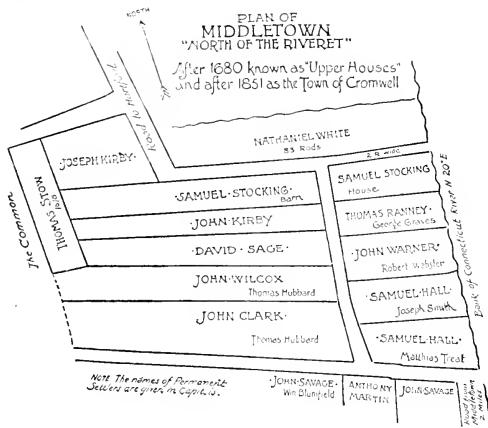 NORTH
PLAN OF
MIDDLETOWN
"NORTH OF THE RIVERET"
After 1680 known as "Upper Houses"
and after 1851 as the Town of Cromwell
Road to Hartford
NATHANIEL WHITE
83 Rods
2 R. wide
The Common
THOMAS STOW
JOSEPH KIRBY.
SAMUEL·STOCKING
Barn
·JOHN·KIRBY
·DAVID·SAGE·
JOHN·WILCOX
Thomas Hubbard
JOHN CLARK·
Thomas Hubbard
SAMUEL STOCKING
House
THOMAS RANNEY·
George Graves
·JOHN WARNER·
Robert Webster
·SAMUEL·HALL·
Joseph Smith
·SAMUEL·HALL·
Matthias Treat
Bank of Connecticut River N 20°E
Note The names of Permanent
Settlers are given in Capitals.
·JOHN·SAVAGE·
Wm Blumfield
ANTHONY
MARTIN
JOHN SAVAGE
Road from
Middletown
2 Miles